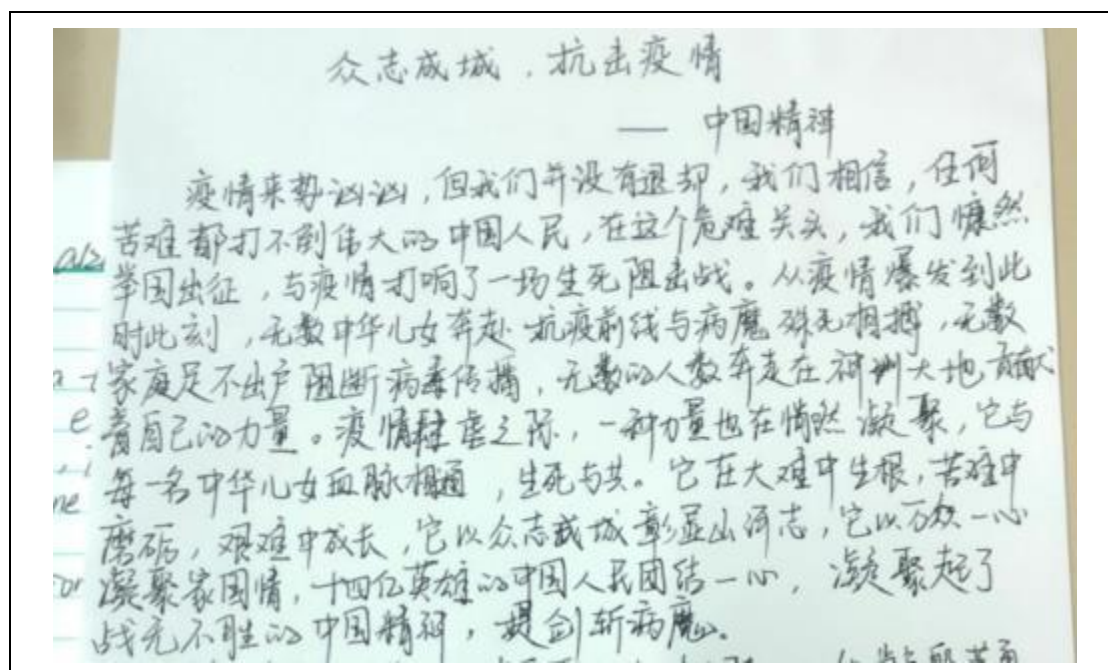 众志成城，抗击疫情
—— 中国精神
疫情来势汹汹，但我们并没有退却，我们相信，任何
苦难都打不到伟大的中国人民，在这个危难关头，我们慷然
举国出征，与疫情打响了一场生死阻击战。从疫情爆发到此
时此刻，无数中华儿女奔赴抗疫前线与病魔殊死相搏，无数
家庭足不出户阻断病毒传播，无数的人数奔走在神州大地贡献
着自己的力量。疫情肆虐之际，一种力量也在悄然凝聚，它与
每一名中华儿女血脉相通，生死与共。它在大难中生根，苦难中
磨砺，艰难中成长，它以众志成城彰显山河志，它以万众一心
凝聚家国情，十四亿英雄的中国人民团结一心，凝聚起了
战无不胜的中国精神，提剑斩病魔。